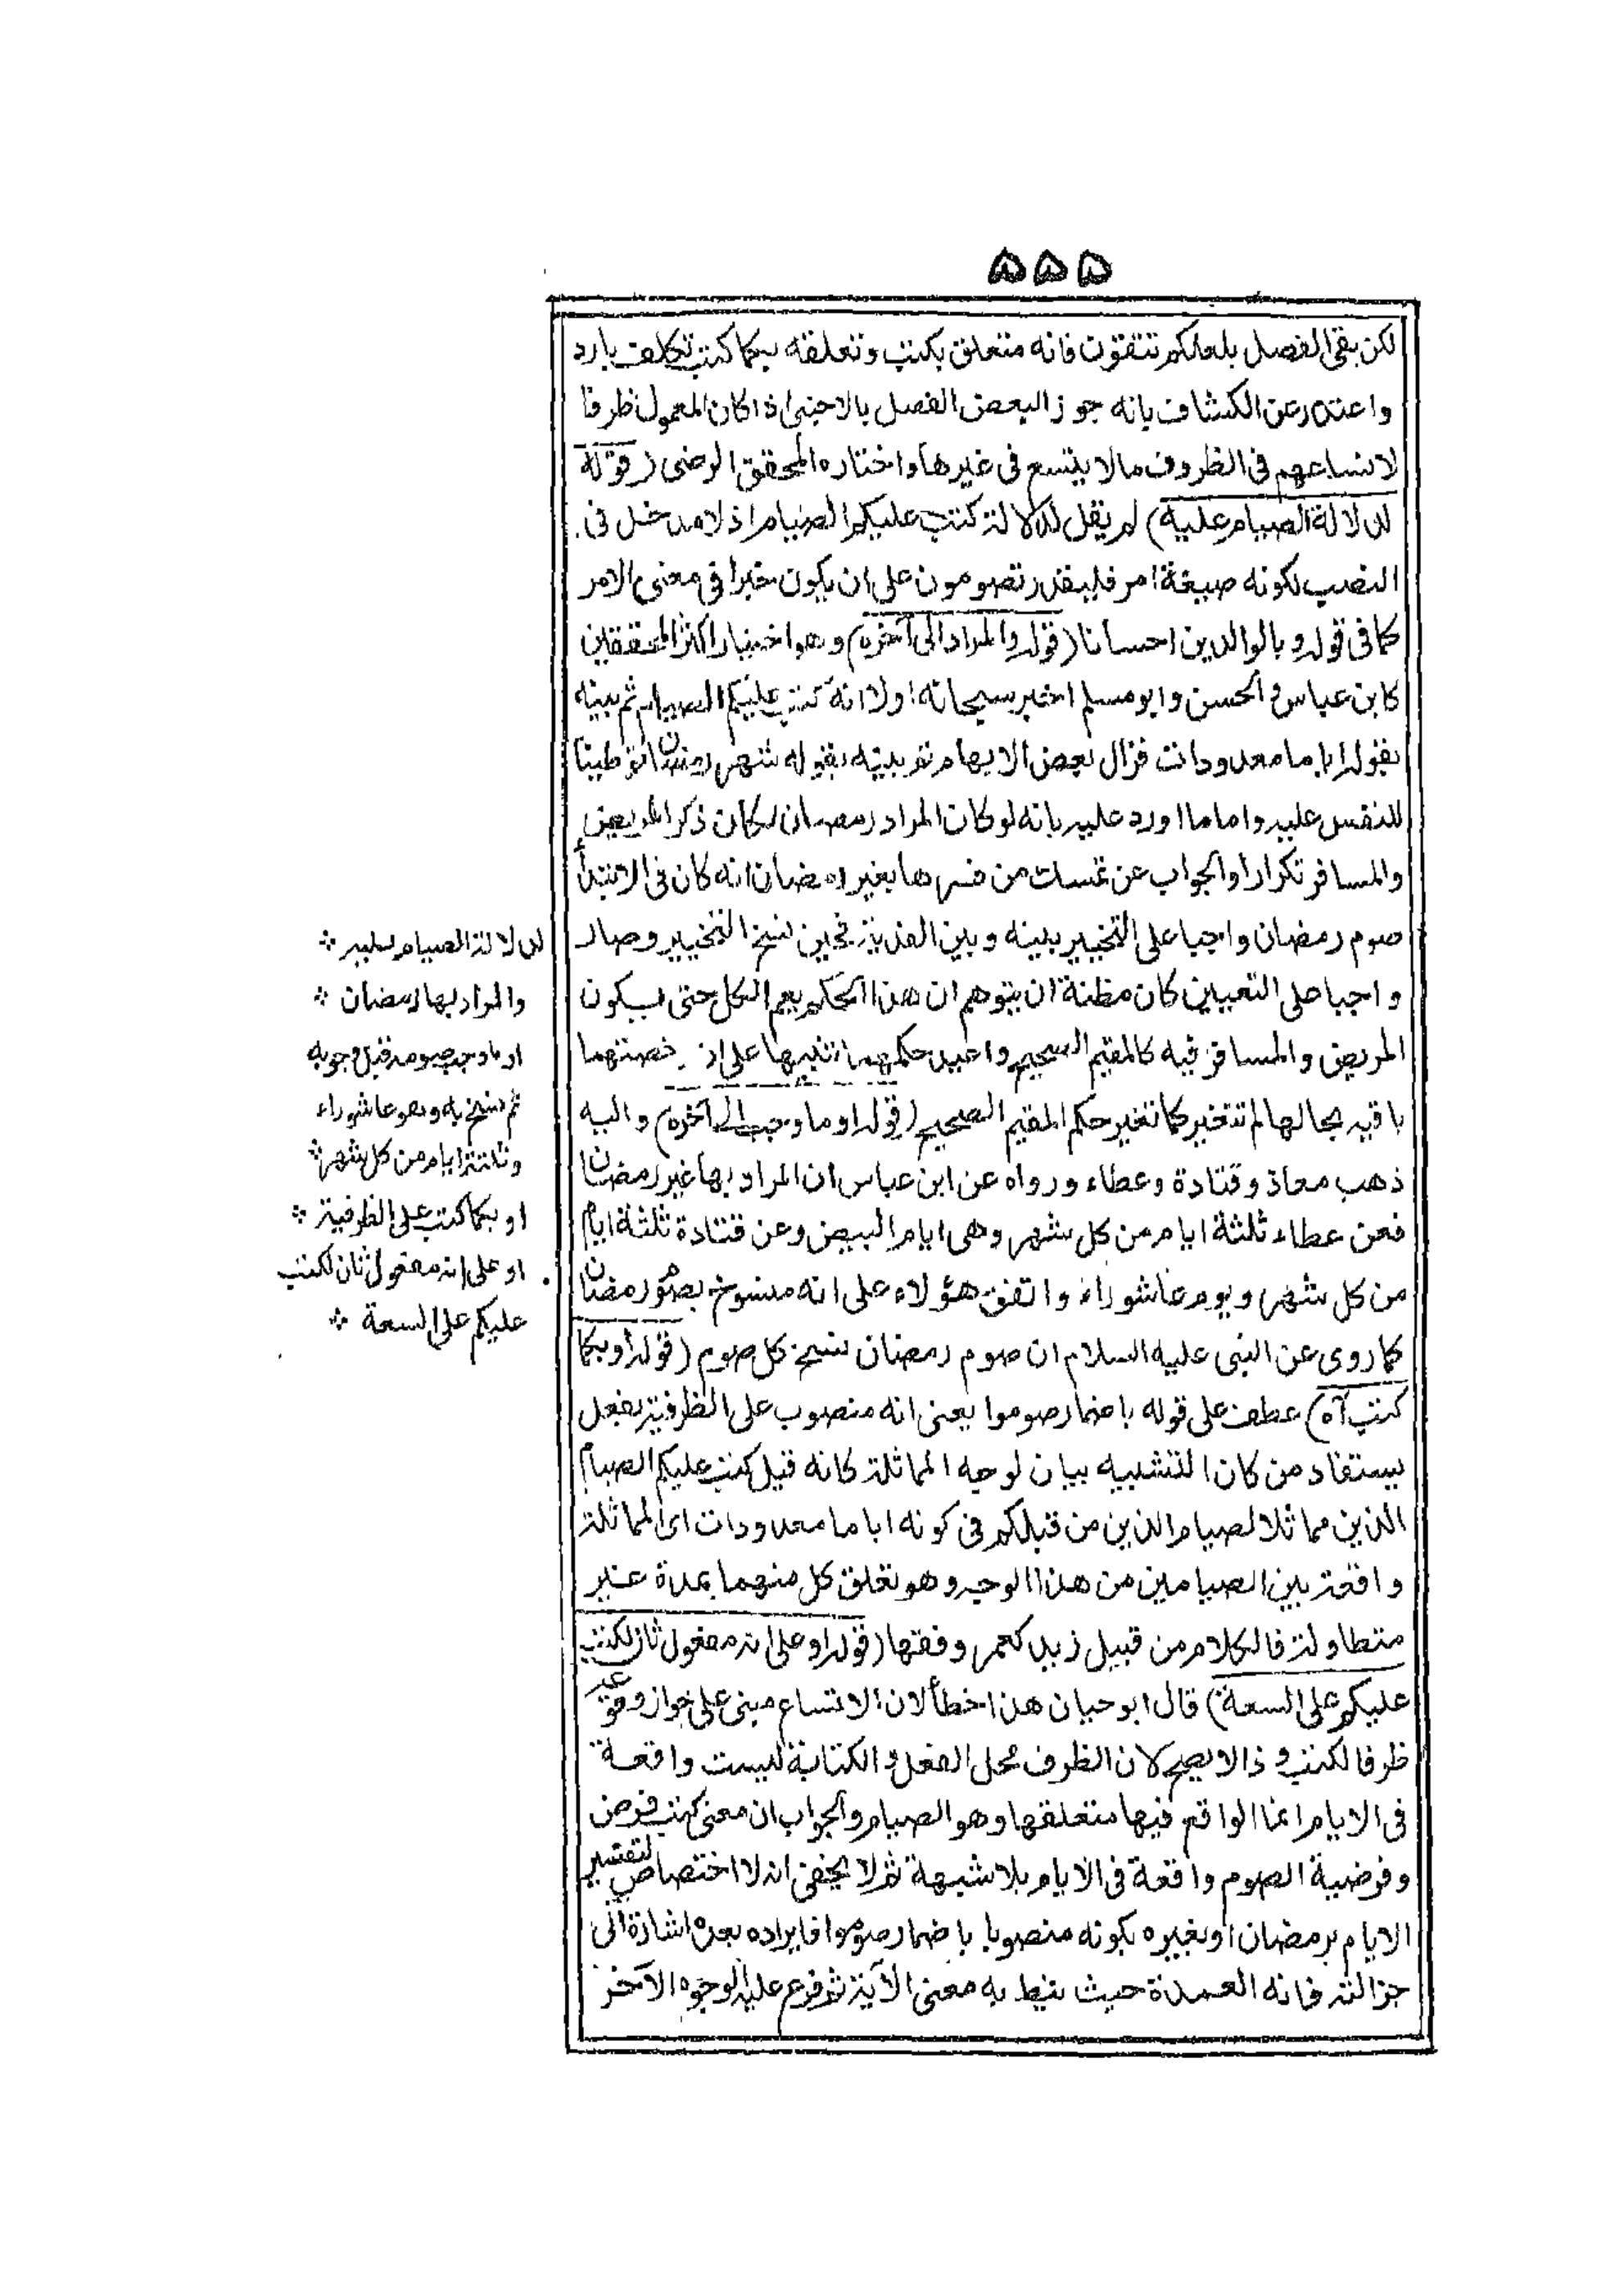 ٥٥٥
لكن بقى الفصل بلعلكم تتقون فانه متعلق بكتب وتعلقه بكما كتب تكلف بارد
واعتذر عن الكشاف بانه جوز البعض الفصل بالاجنبى اذا كان المعمول ظرفا
لاتساعهم فى الظروف مالا يتسع فى غيرها واختاره المحقق الرضى (قوله
لدلالة الصيام عليه) لم يقل لدلالة كتب عليكم الصيام اذ لا مدخل فى
النصب لكونه صيغة امر فليقدر تصومون على ان يكون خبرا فى معنى الامر
كما فى قوله وبالوالدين احسانا (قوله والمراد الى آخره) وهو اختيار اكثر المحققين
كابن عباس والحسن وابو مسلم اخبر سبحانه اولا انه كتب عليكم الصيام ثم بينه
بقوله اياما معدودات فزال بعض الابهام ثم بينه بقوله شهر رمضان توطينا
للنفس عليه واما ما اورد عليه بانه لو كان المراد رمضان لكان ذكر المريض
والمسافر تكرارا والجواب عن تمسك من فسرها بغير رمضان انه كان فى الابتدأ
صوم رمضان واجبا على التخيير بينه وبين الفدية فحين نسخ التخيير وصار
واجبا على التعيين كان مظنة ان يتوهم ان هذا الحكم يعم الكل حتى يكون
المريض والمسافر فيه كالمقيم الصحيح واعيد حكمهما تنبيها على ان رخصتهما
باقية بحالها لم تتغير كما تغير حكم المقيم الصحيح (قوله او ما وجب الى آخره) واليه
ذهب معاذ وقتادة وعطاء ورواه عن ابن عباس ان المراد بها غير رمضان
فعن عطاء ثلثة ايام من كل شهر وهى ايام البيض وعن قتادة ثلثة ايام
من كل شهر ويوم عاشوراء واتفق هؤلاء على انه منسوخ بصوم رمضان
كما روى عن النبى عليه السلام ان صوم رمضان نسخ كل صوم (قوله او بكما
كتب آه) عطف على قوله باضمار صوموا يعنى انه منصوب على الظرفية بفعل
يستفاد من كان التشبيه بيان لوجه المماثلة كانه قيل كتب عليكم الصيام
الذين مماثلا لصيام الذين من قبلكم فى كونه اياما معدودات اى المماثلة
واقعة بين الصيامين من هذا الوجه وهو تعلق كل منهما بمدة غير
متطاولة فالكلام من قبيل زيد كعمر وفقها (قوله او على انه مفعول ثان لكتب
عليكم على السعة) قال ابو حيان هذا خطأ لان الاتساع مبنى على جواز وقوعه
ظرفا لكتب وذا لا يصح لان الظرف محل الفعل والكتابة ليست واقعة
فى الايام انما الواقع فيها متعلقها وهو الصيام والجواب ان معنى كتب فرض
وفرضية الصوم واقعة فى الايام بلا شبهة ثم لا يخفى انه لا اختصاص لتفسير
الايام برمضان او بغيره بكونه منصوبا باضمار صوموا فايراده بعده اشارة الى
جزالته فانه العمدة حيث نيط به معنى الآية ثم فرع عليه الوجوه الآخر
لدلالة الصيام عليه
والمراد بها رمضان
او ما وجب صومه قبل وجوبه
ثم نسخ به وهو عاشوراء
وثلثة ايام من كل شهر
او بكما كتب على الظرفية
او على انه مفعول ثان لكتب
عليكم على السعة